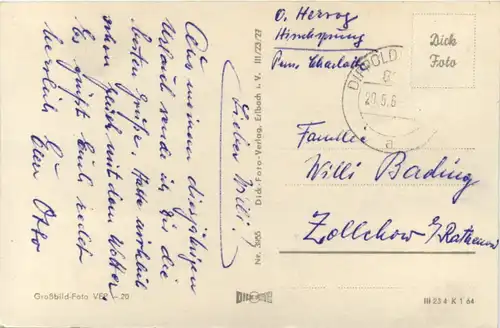 Lieber Willi!
Aus meinem diesjährigen
Urlaub sende ich Dir die
besten Grüße. Hatte wirklich
schon Glück mit dem Wetter.
Es grüßt Euch recht
herzlich Euer Otto
O. Herzog
Hirschsprung
Pens. Charlotte
Dick
Foto
DIPPOLD
20.6.6
a
Familie
Willi Bading
Zollchow b/Rathenow
Dick-Foto-Verlag, Erlbach i. V. III/23/27
Nr. 3855
Großbild-Foto VEB - 20
DICK
III 23 4 K 1 64